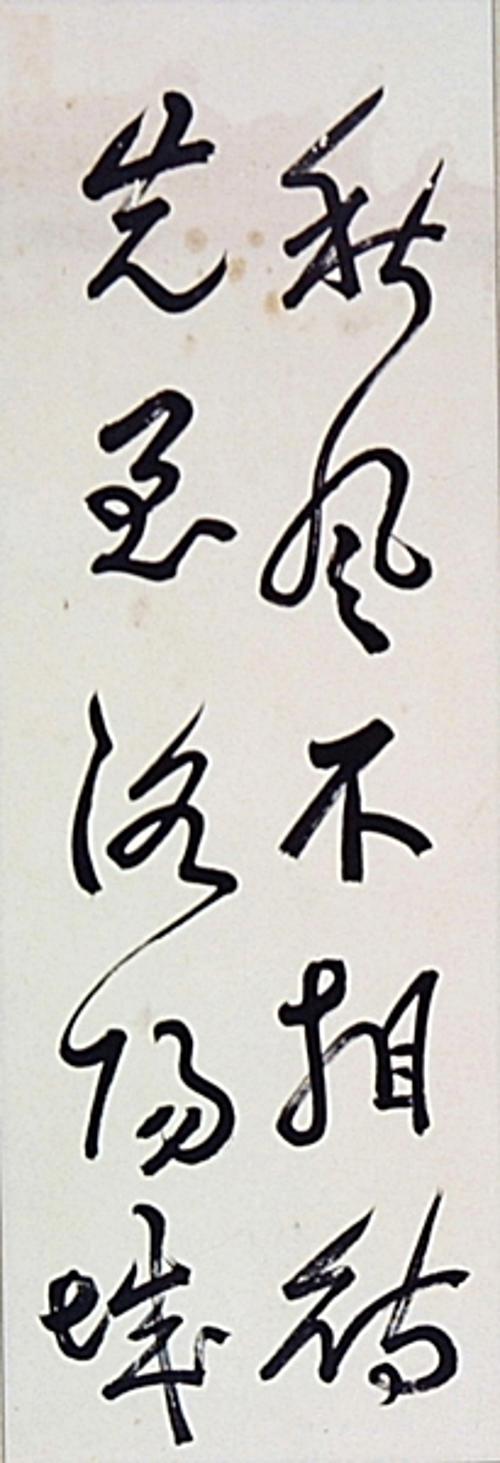 秋風不相待
先至洛陽城